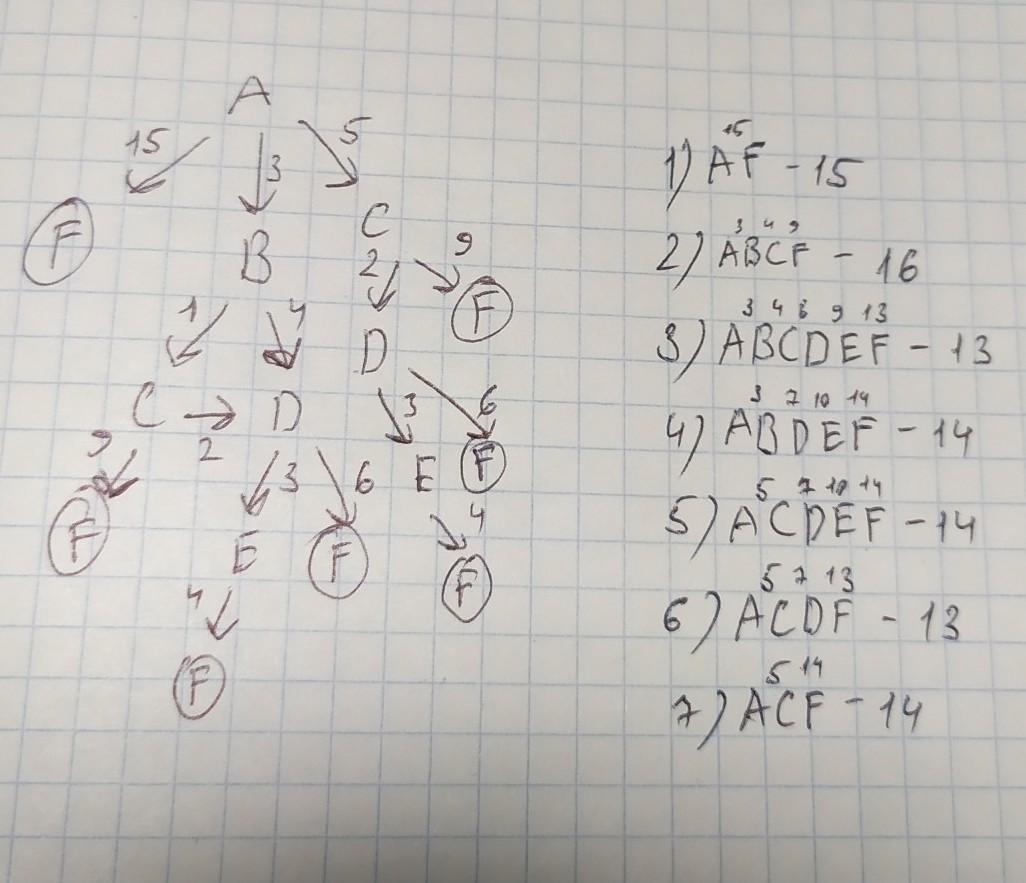 A
15 3 5
F B C
2 9
F
1 4 D
C 2 D 3 6
9 3 6 E F
F E F 4
4 F
F
15
1) AF - 15
3 4 9
2) ABCF - 16
3 4 6 9 13
3) ABCDEF - 13
3 7 10 14
4) ABDEF - 14
5 7 10 14
5) ACDEF - 14
5 7 13
6) ACDF - 13
5 14
7) ACF - 14